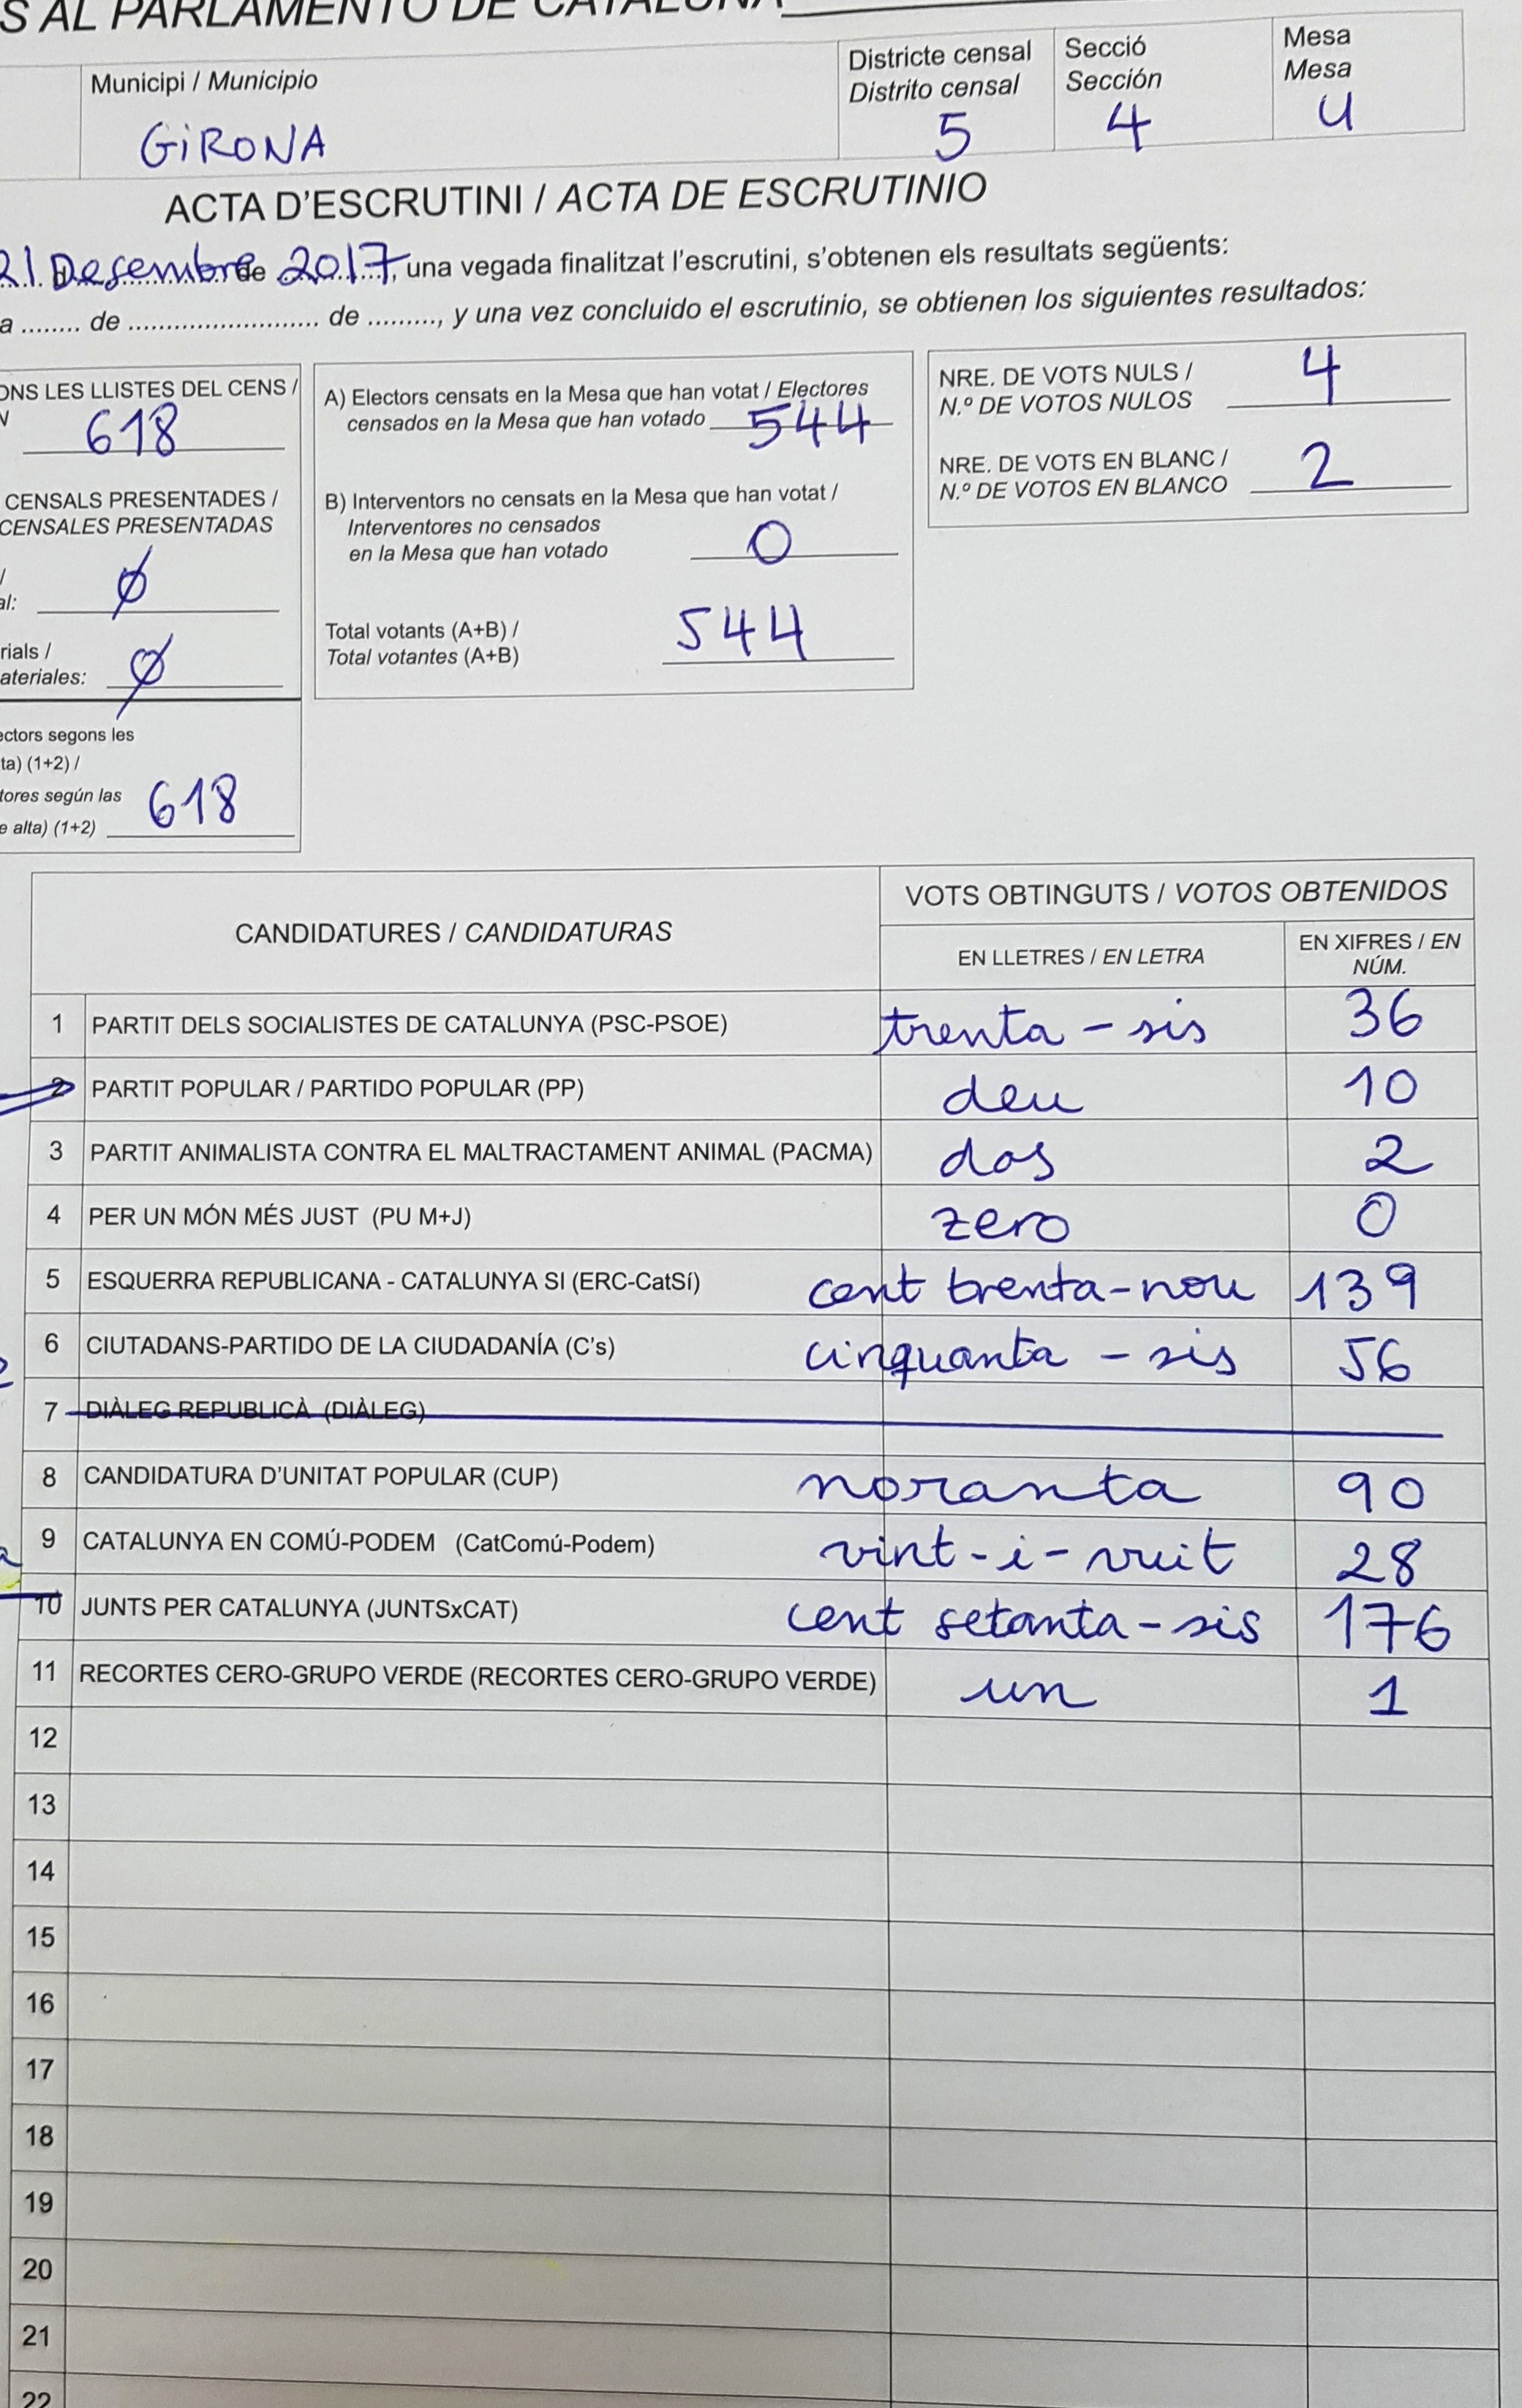 S AL PARLAMENTO DE CATALUÑA
Municipi / Municipio
GiRONA
Districte censal
Distrito censal
5
Secció
Sección
4
Mesa
Mesa
U
ACTA D'ESCRUTINI / ACTA DE ESCRUTINIO
21 Desembre de 2017, una vegada finalitzat l'escrutini, s'obtenen els resultats següents:
a ........ de .......................... de ........., y una vez concluido el escrutinio, se obtienen los siguientes resultados:
ONS LES LLISTES DEL CENS /
618
CENSALS PRESENTADES /
CENSALES PRESENTADAS
/
al: Ø
rials /
ateriales: Ø
ectors segons les
ta) (1+2) /
tores según las
e alta) (1+2) 618
A) Electors censats en la Mesa que han votat / Electores
censados en la Mesa que han votado 544
B) Interventors no censats en la Mesa que han votat /
Interventores no censados
en la Mesa que han votado 0
Total votants (A+B) /
Total votantes (A+B) 544
NRE. DE VOTS NULS /
N.º DE VOTOS NULOS 4
NRE. DE VOTS EN BLANC /
N.º DE VOTOS EN BLANCO 2
CANDIDATURES / CANDIDATURAS
VOTS OBTINGUTS / VOTOS OBTENIDOS
EN LLETRES / EN LETRA
EN XIFRES / EN
NÚM.
1 PARTIT DELS SOCIALISTES DE CATALUNYA (PSC-PSOE) trenta - sis 36
2 PARTIT POPULAR / PARTIDO POPULAR (PP) deu 10
3 PARTIT ANIMALISTA CONTRA EL MALTRACTAMENT ANIMAL (PACMA) dos 2
4 PER UN MÓN MÉS JUST (PU M+J) zero 0
5 ESQUERRA REPUBLICANA - CATALUNYA SI (ERC-CatSí) cent trenta-nou 139
6 CIUTADANS-PARTIDO DE LA CIUDADANÍA (C's) cinquanta - sis 56
7 DIÀLEG REPUBLICÀ (DIÀLEG)
8 CANDIDATURA D'UNITAT POPULAR (CUP) noranta 90
9 CATALUNYA EN COMÚ-PODEM (CatComú-Podem) vint-i-vuit 28
10 JUNTS PER CATALUNYA (JUNTSxCAT) cent setanta-sis 176
11 RECORTES CERO-GRUPO VERDE (RECORTES CERO-GRUPO VERDE) un 1
12
13
14
15
16
17
18
19
20
21
22